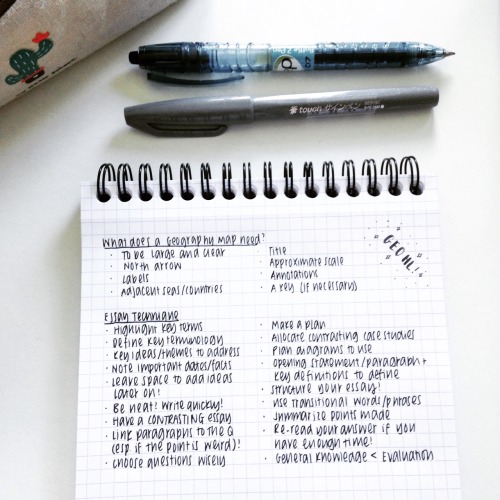 touch
What does a Geography Map need?
· To be large and clear
· North arrow
· Labels
· Adjacent seas/countries
Title
· Approximate scale
· Annotations
· A key (if necessary)
GEO HL!
Essay Technique
· Highlight key terms
· Define key terminology
· Key ideas/themes to address
· Note important dates/facts
· Leave space to add ideas
later on!
· Be neat! Write quickly!
· Have a CONTRASTING essay
· Link paragraphs to the Q
(esp if the point is weird)!
· Choose questions wisely
· Make a plan
· Allocate contrasting case studies
· Plan diagrams to use
· Opening statement/paragraph +
key definitions to define
· Structure your essay!
· Use transitional words/phrases
· Summarize points made
· Re-read your answer if you
have enough time!
· General Knowledge < Evaluation